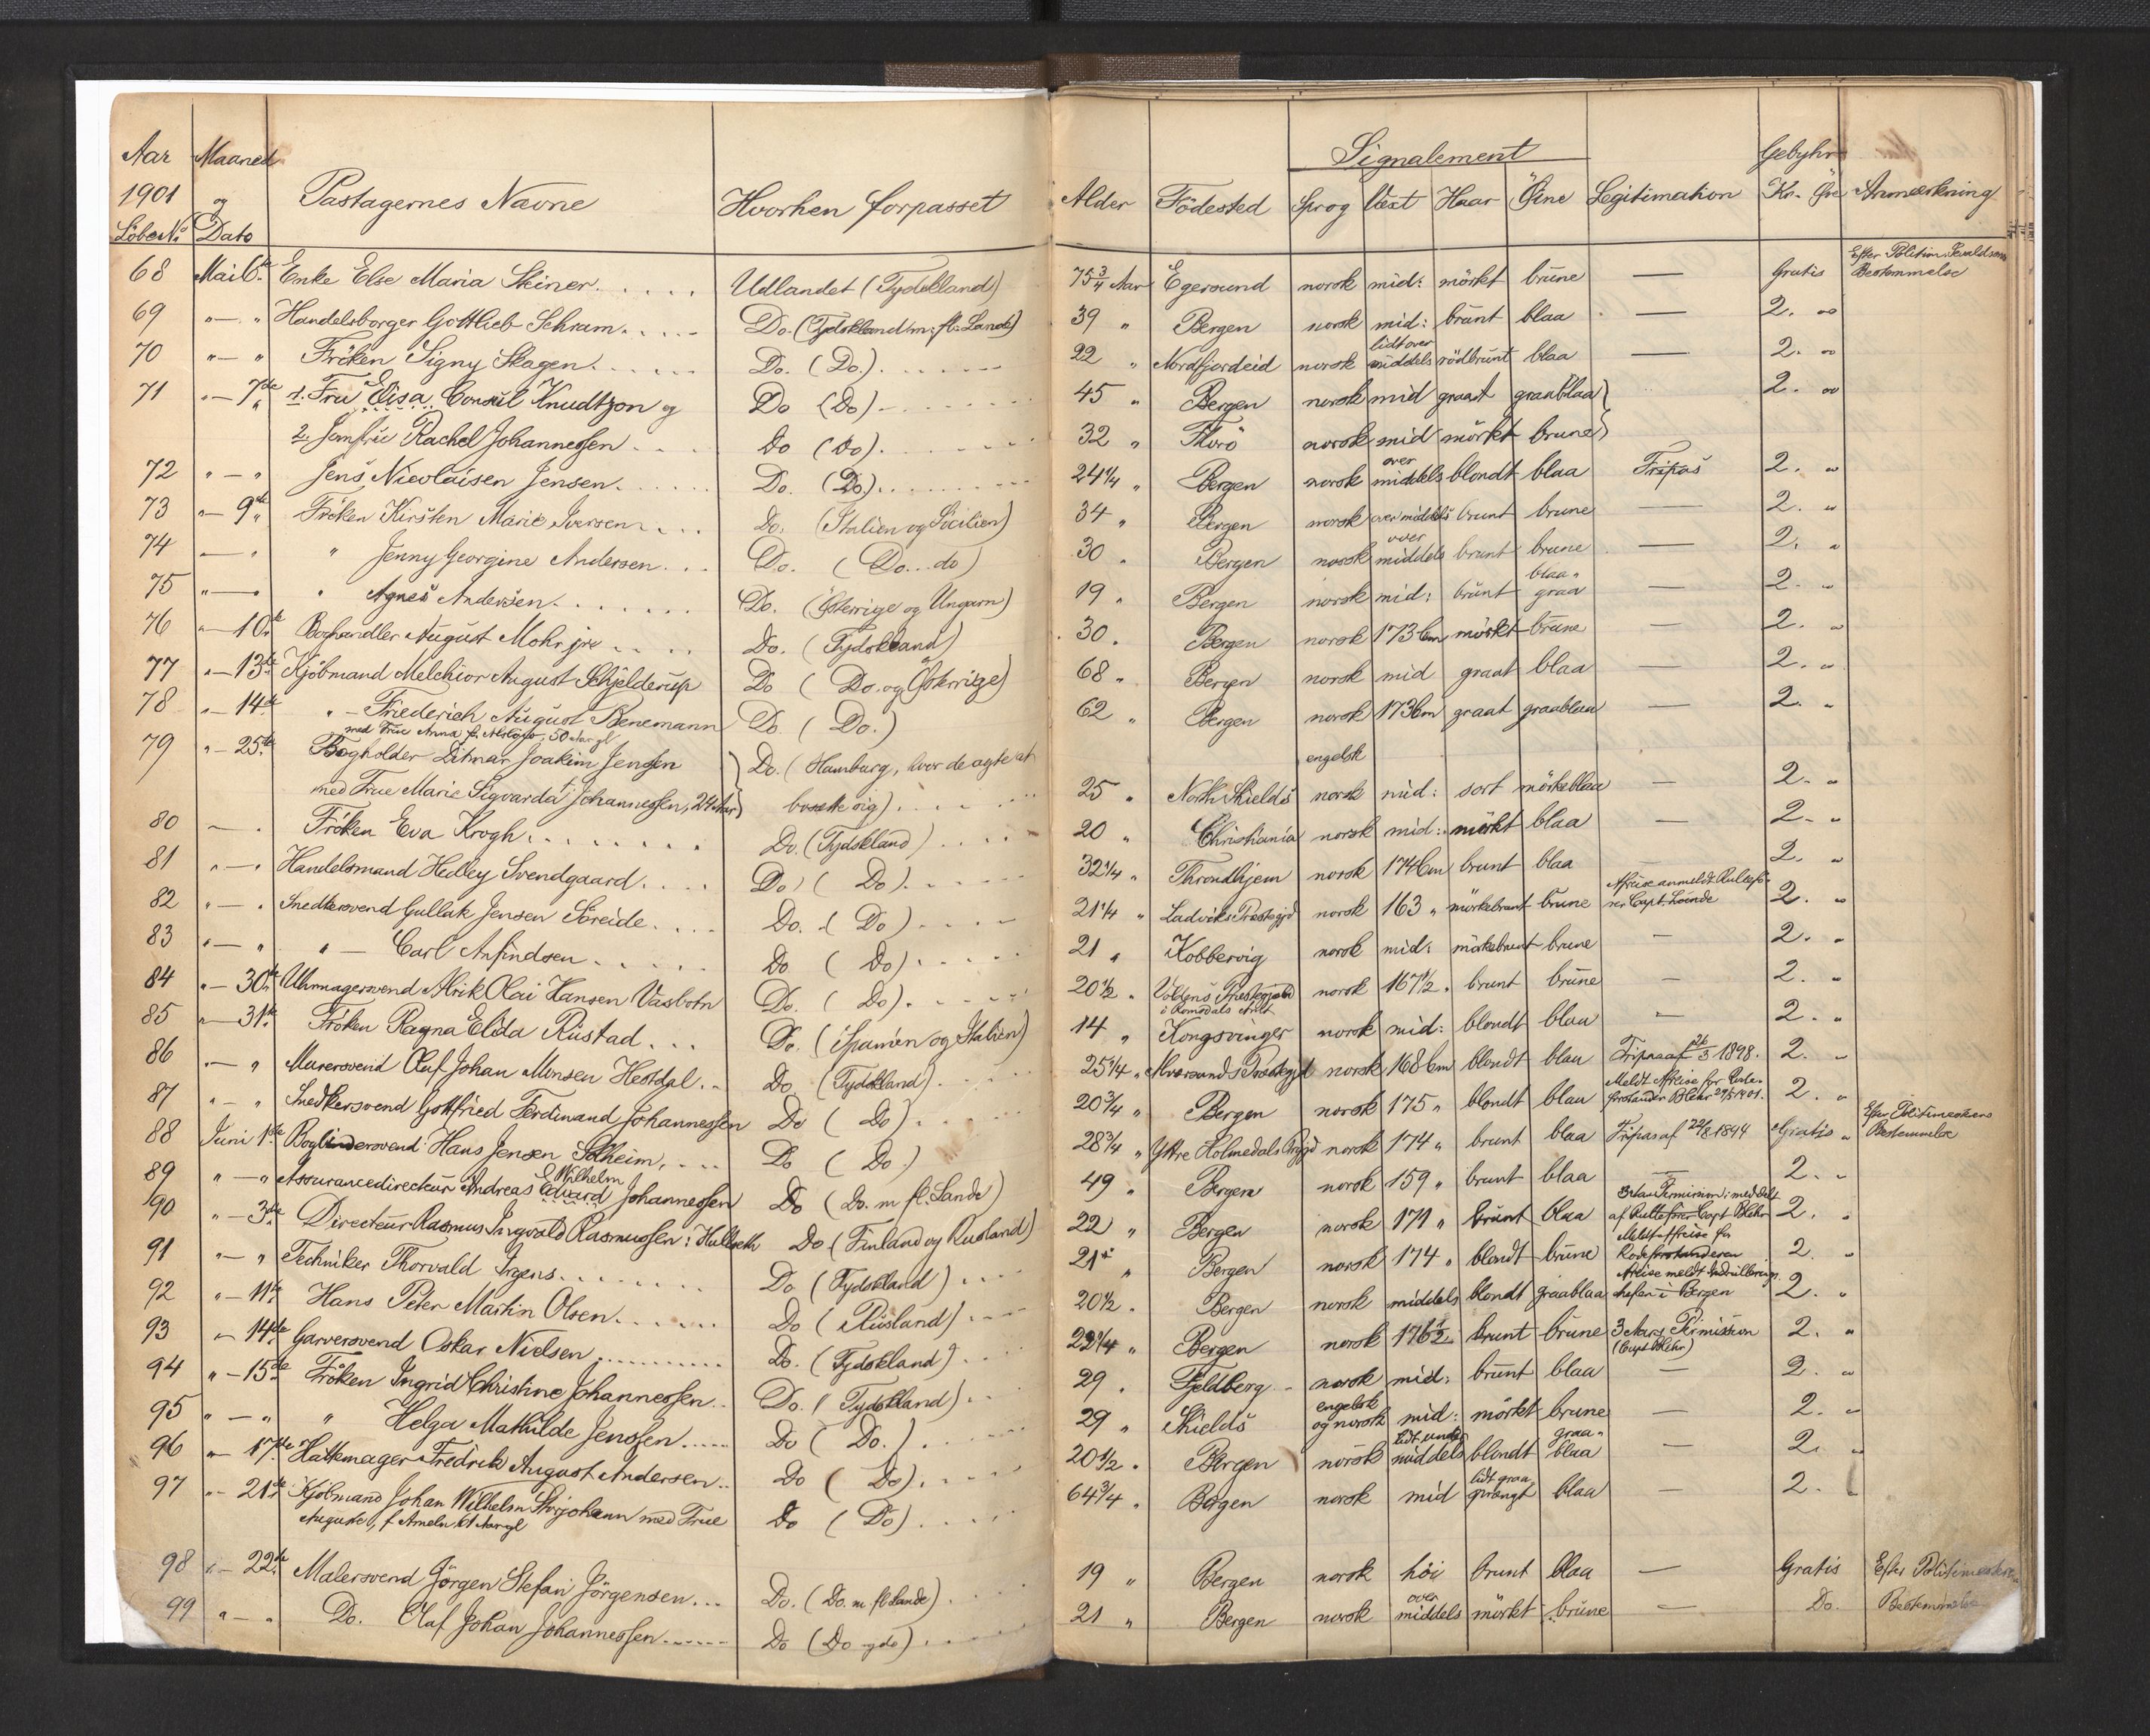 Aar Maaned
1901 og Pastagernes Navne Hvorhen forpasset
LöbeNo Dato
68 Mai 6te Enke Else Maria Steiner. Udlandet (Tydskland)
69 " — " Handelsborger Gottlieb Schram. Do. (Tydskland m: fl: Lande)
70 " — " Fröken Signy Skagen. Do. (Do.)
71 " — 7de 1. Fru Elisa Consul Knudtzon og Do (Do)
2. Jomfru Rachel Johannessen Do (Do)
72 " — " Jens Nicolaisen Jensen. Do. (Do.)
73 " — 9de Fröken Kirsten Marie Iversen Do. (Italien og Sicilien)
74 " — " " Jenny Georgine Andersen Do. (Do... do)
75 " — " " Agnes Andersen. Do. (Österrige og Ungarn)
76 " — 10de Boghandler August Mohr jre Do. (Tydskland)
77 " — 13de Kjöbmand Melchior August Schjelderup Do (Do. og Österrige)
78 " — 14de " — Friederich August Benemann Do. (Do.)
med Frue Anna f. 50 Aar gl
79 " — 25de Bogholder Ditmar Joakim Jensen Do. (Hamburg, hvor de agte at
med Frue Marie Sigvarda f. Johannessen, 24 Aar bosætte sig)
80 — " Fröken Eva Krogh. Do. (Tydskland)
81 " — " Handelsmand Hedley Svendgaard Do. (Do)
82 " — " Snedkersvend Gullak Jensen Söreide. Do. (Do)
83 " — " " — Carl Anfindsen Do (Do)
84 " — 30te Uhrmagersvend Alrik Olai Hansen Vasbotn Do. (Do)
85 " — 31te Fröken Ragna Elida Rustad Do. (Spanien og Italien)
86 " — " Murersvend Olaf Johan Monsen Hestdal. Do (Tydskland)
87 " — " Snedkersvend Gottfried Ferdinand Johannessen Do (Do)
88 Juni 1ste Bogbindersvend Hans Jensen Solheim Do (Do.)
Wilhelm
89 " — " Assurancedirecteur Andreas Edvard Johannessen Do (Do. m fl. Lande)
90 " — 3de Directeur Rasmus Ingvald Rasmussen : Hulbeth Do (Finland og Rusland)
91 " — " Techniker Thorvald Irgens Do (Tydskland)
92 " — 11te Hans Peter Martin Olsen Do (Rusland)
93 " — 14de Garversvend Oskar Nielsen Do. (Tydskland)
94 " — 15de Fröken Ingrid Christine Johannessen Do. (Tydskland)
95 " — " " Helga Mathilde Jenssen Do (Do.)
96 " — 17de Hattemager Fredrik August Andersen Do (Do)
97 " — 21de Kjöbmand Johan Wilhelm Storjohann med Frue Do (Do)
Auguste, f. Ameln 61 Aar gl
98 " — 22de Malersvend Jörgen Stefan Jörgensen Do. (Do. m fl Lande)
99 " — " Do. Olaf Johan Johannessen Do (Do og do)
Signalement Gebyhr
Alder Födested Sprog Vext Haar Öine Legitimation Kr. Öre Anmærkning
Efter Politim.
75 3/4 Aar Egersund norsk mid: mörkt brune — Gratis Bestemmelse
39 " Bergen norsk mid: brunt blaa — 2. "
lidt over
22 " Nordfjordeid norsk middels rödbrunt blaa — 2. "
45 " Bergen norsk mid graat graablaa 2. "
32 " Thorö norsk mid mörkt brune
over
24 1/4 " Bergen norsk middels blondt blaa Fripas 2. "
34 " Bergen norsk over middels brunt brune — 2. "
over
30 " Bergen norsk middels brunt brune — 2. "
blaa-
19 " Bergen norsk mid: brunt graa — 2. "
30 " Bergen norsk 173 Cm mörkt brune — 2. "
68 " Bergen norsk mid graat blaa — 2. "
62 " Bergen norsk 173 Cm graat graablaa — 2. "
engelsk
25 " North Shields norsk mid: sort mörkeblaa — 2. "
20 " Christiania norsk mid: mörkt blaa — 2. "
32 1/4 " Throndhjem norsk 174 Cm brunt blaa — 2. "
Afreise anmeldt Rullefö-
21 1/4 " Ladviks Præstegjd norsk 163 " mörkebrunt brune rer Capt. Loinde 2. "
21 " Kobbervig norsk mid: mörkebrunt brune — 2. "
20 1/2 " Voldens Præstegjeld norsk 167 1/2 " brunt brune — 2. "
i Romsdals Amt
14 " Kongsvinger norsk mid: blondt blaa — 2. "
25 1/4 " Alversunds Præstegjd norsk 168 Cm blondt blaa Fripas af 26/3 1898. 2. "
Meldt Afreise for Rode-
20 3/4 " Bergen norsk 175 " blondt blaa forstander Blehr 29/5 1901. 2. "
Efter Politimesterens
28 3/4 " Yttre Holmedals Prgjd norsk 174 " brunt blaa Fripas af 22/8 1894 Gratis " Bestemmelse
49 " Bergen norsk 159 " brunt blaa — 2. "
3 Aars Permission; meddelt
22 " Bergen norsk 171 " brunt blaa af Rulleförer Capt Blehr 2. "
Meldt Afreise for
21 " Bergen norsk 174 " blondt brune Rodeforstanderen 2. "
Afreise meldt Indrullerings
20 1/2 " Bergen norsk middels blondt graablaa chefen i Bergen 2. "
22 1/4 " Bergen norsk 176 1/2 brunt brune 3 Aars Permission 2. "
(Capt Blehr)
29 " Fjeldberg norsk mid: brunt blaa — 2. "
engelsk
29 " Shields og norsk mid: mörkt brune — 2. "
lidt under graa-
20 1/2 " Bergen norsk middels blondt blaa — 2. "
lidt graa
64 3/4 " Bergen norsk mid sprængt blaa — 2. "
19 " Bergen norsk höi brunt blaa — Gratis Efter Politimesterens
over
21 " Bergen norsk middels mörkt brune — Do. Bestemmelse